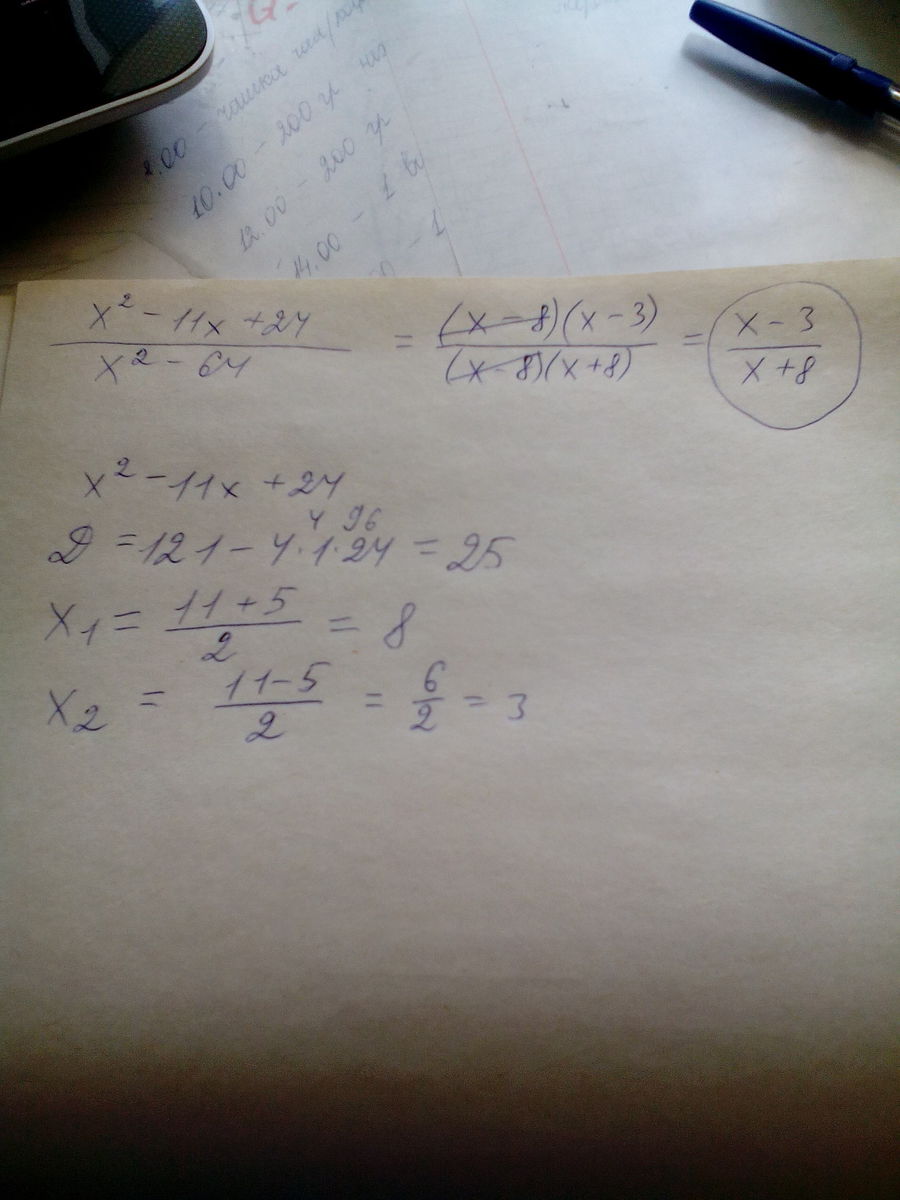 8.00 - чашка чая
10.00 - 200 гр
12.00 - 200 гр
14.00 - 1
- 1
x² - 11x + 24 / x² - 64 = (x - 8)(x - 3) / (x - 8)(x + 8) = x - 3 / x + 8
x² - 11x + 24
4 96
D = 121 - 4·1·24 = 25
x₁ = 11 + 5 / 2 = 8
x₂ = 11 - 5 / 2 = 6 / 2 = 3